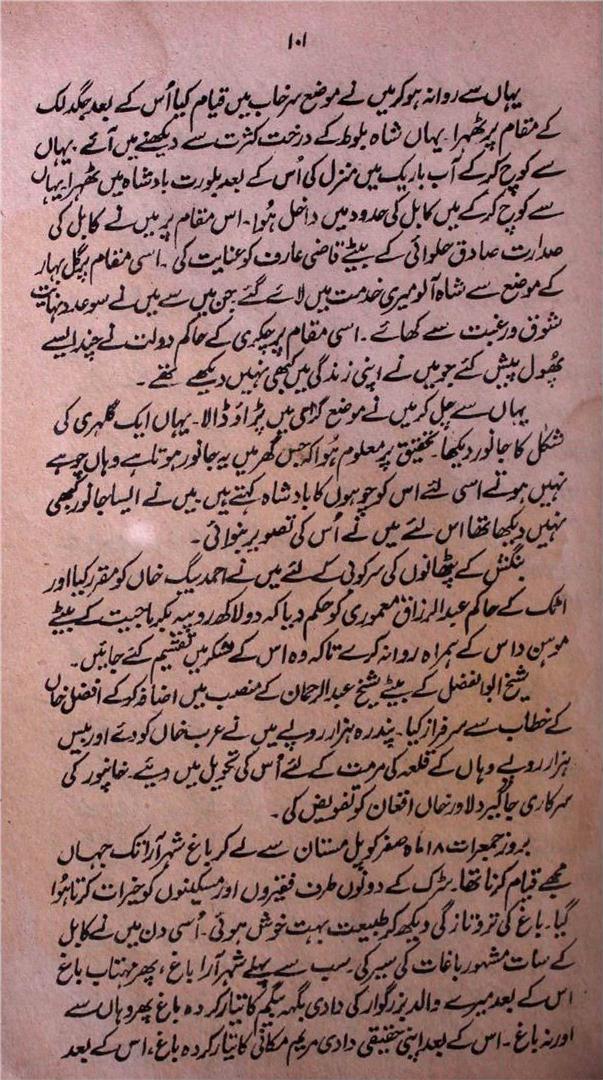 ۱۰۱
یہاں سے روانہ ہو کر میں نے موضع سرخاب میں قیام کیا اُس کے بعد جگدلک
کے مقام پر ٹھہرا۔ یہاں شاہ بلوط کے درخت کثرت سے دیکھنے میں آئے۔ یہاں
سے کوچ کر کے آب باریک میں منزل کی اُس کے بعد بلورت بادشاہ میں ٹھہرا۔ یہاں
سے کوچ کر کے میں کابل کی حدود میں داخل ہُوا۔ اس مقام پر میں نے کابل کی
صدارت صادق حلوائی کے بیٹے قاضی عارف کو عنایت کی۔ اسی مقام پر گل بہار
کے موضع سے شاہ آلو میری خدمت میں لائے گئے جن میں سے میں نے سو عدد نہایت
شوق ورغبت سے کھائے۔ اسی مقام پر چکری کے حاکم دولت نے چند ایسے
پھُول پیش کئے جو میں نے اپنی زندگی میں کبھی نہیں دیکھے تھے۔
یہاں سے چل کر میں نے موضع گرامی میں پڑاؤ ڈالا۔ یہاں ایک گلہری کی
شکل کا جانور دیکھا۔ تحقیق پر معلوم ہُوا کہ جس گھر میں یہ جانور ہوتا ہے وہاں چوہے
نہیں ہوتے اسی لئے اس کو چوہوں کا بادشاہ کہتے ہیں۔ میں نے ایسا جانور کبھی
نہیں دیکھا تھا اس لئے میں نے اُس کی تصویر بنوائی۔
بنگش کے پٹھانوں کی سرکوبی کے لئے میں نے احمد بیگ خاں کو مقرر کیا اور
اٹک کے حاکم عبدالرزاق معموری کو حکم دیا کہ دو لاکھ روپیہ بکرماجیت کے بیٹے
موہن داس کے ہمراہ روانہ کرے تاکہ وہ اس کے لشکر میں تقسیم کئے جائیں۔
شیخ ابوالفضل کے بیٹے شیخ عبدالرحمان کے منصب میں اضافہ کر کے افضل خاں
کے خطاب سے سرفراز کیا۔ پندرہ ہزار روپے میں نے عرب خاں کو دئے اور بیس
ہزار روپے وہاں کے قلعہ کی مرمت کے لئے اُس کی تحویل میں دیئے۔ خانپور کی
سرکاری جاگیر دلاور خاں افغان کو تفویض کی۔
بروز جمعرات ۱۸ ماہ صفر کو پل مستان سے لے کر باغ شہر آرا تک جہاں
مجھے قیام کرنا تھا۔ سڑک کے دونوں طرف فقیروں اور مسکینوں کو خیرات کرتا ہُوا
گیا۔ باغ کی تر و تازگی دیکھ کر طبیعت بہت خوش ہوئی۔ اُسی دن میں نے کابل
کے سات مشہور باغات کی سیر کی۔ سب سے پہلے شہر آرا باغ، پھر مہتاب باغ
اس کے بعد میرے والد بزرگوار کی دادی بگہہ بیگم کا تیار کردہ باغ پھر وہاں سے
اور نہ باغ۔ اس کے بعد اپنی حقیقی دادی مریم مکانی کا تیار کردہ باغ، اس کے بعد